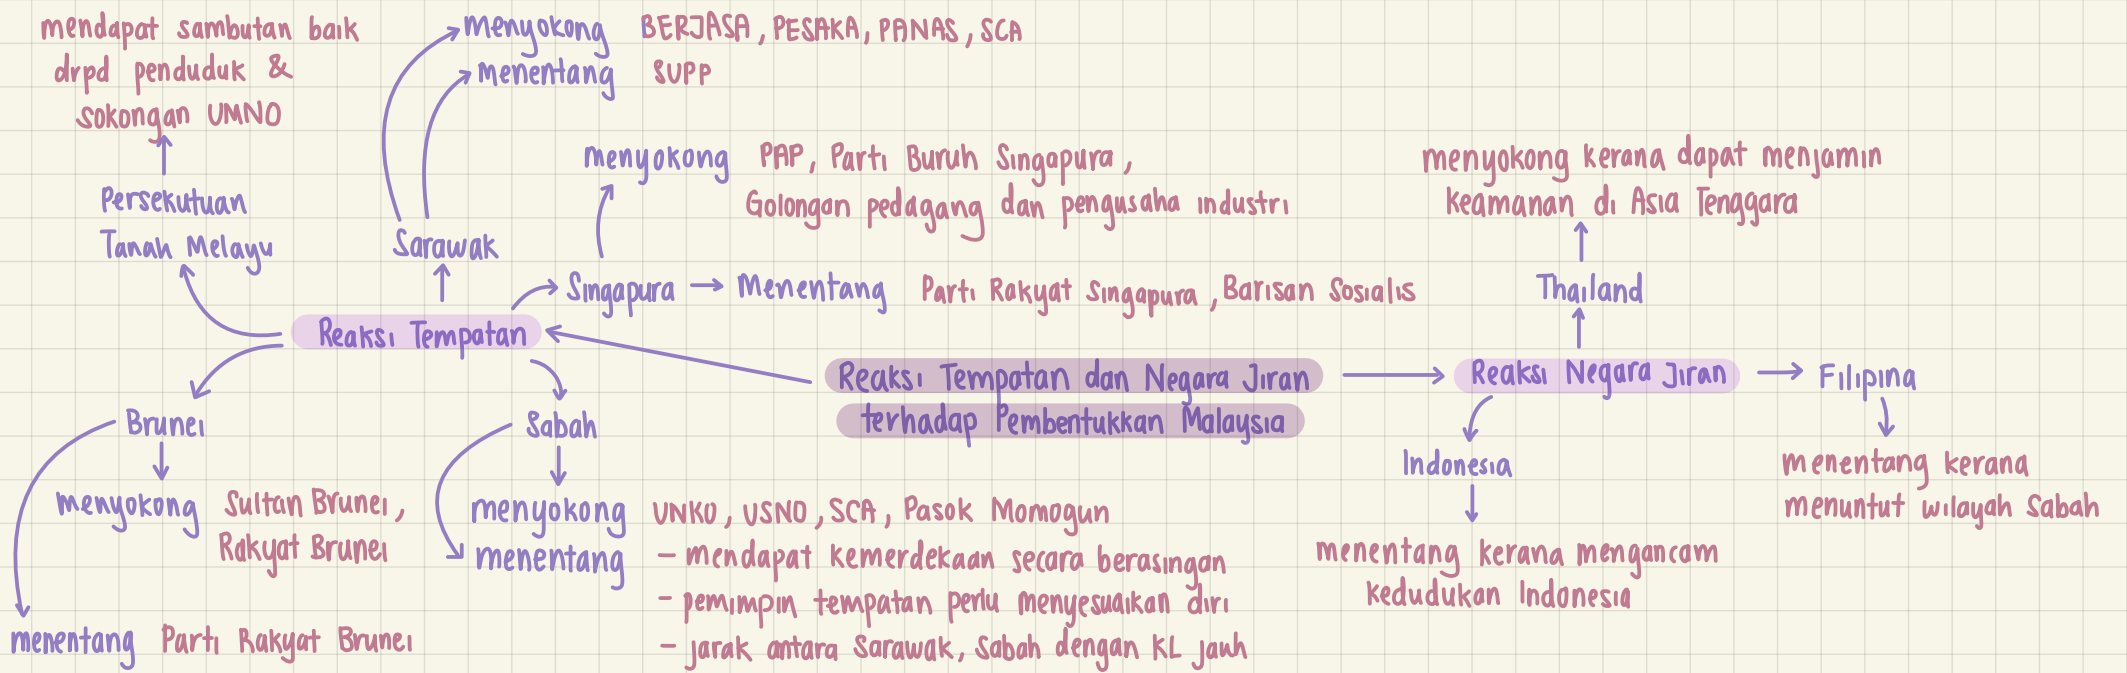 mendapat sambutan baik
drpd penduduk &
sokongan UMNO
Persekutuan
Tanah Melayu
menyokong BERJASA, PESAKA, PANAS, SCA
menentang SUPP
Sarawak
menyokong PAP, Parti Buruh Singapura,
Golongan pedagang dan pengusaha industri
Singapura → Menentang Parti Rakyat Singapura, Barisan Sosialis
Reaksi Tempatan
Brunei
menyokong Sultan Brunei,
Rakyat Brunei
menentang Parti Rakyat Brunei
Sabah
menyokong UNKO, USNO, SCA, Pasok Momogun
menentang - mendapat kemerdekaan secara berasingan
- pemimpin tempatan perlu menyesuaikan diri
- jarak antara Sarawak, Sabah dengan KL jauh
Reaksi Tempatan dan Negara Jiran
terhadap Pembentukkan Malaysia
menyokong kerana dapat menjamin
keamanan di Asia Tenggara
Thailand
Reaksi Negara Jiran
Filipina
menentang kerana
menuntut wilayah Sabah
Indonesia
menentang kerana mengancam
kedudukan Indonesia